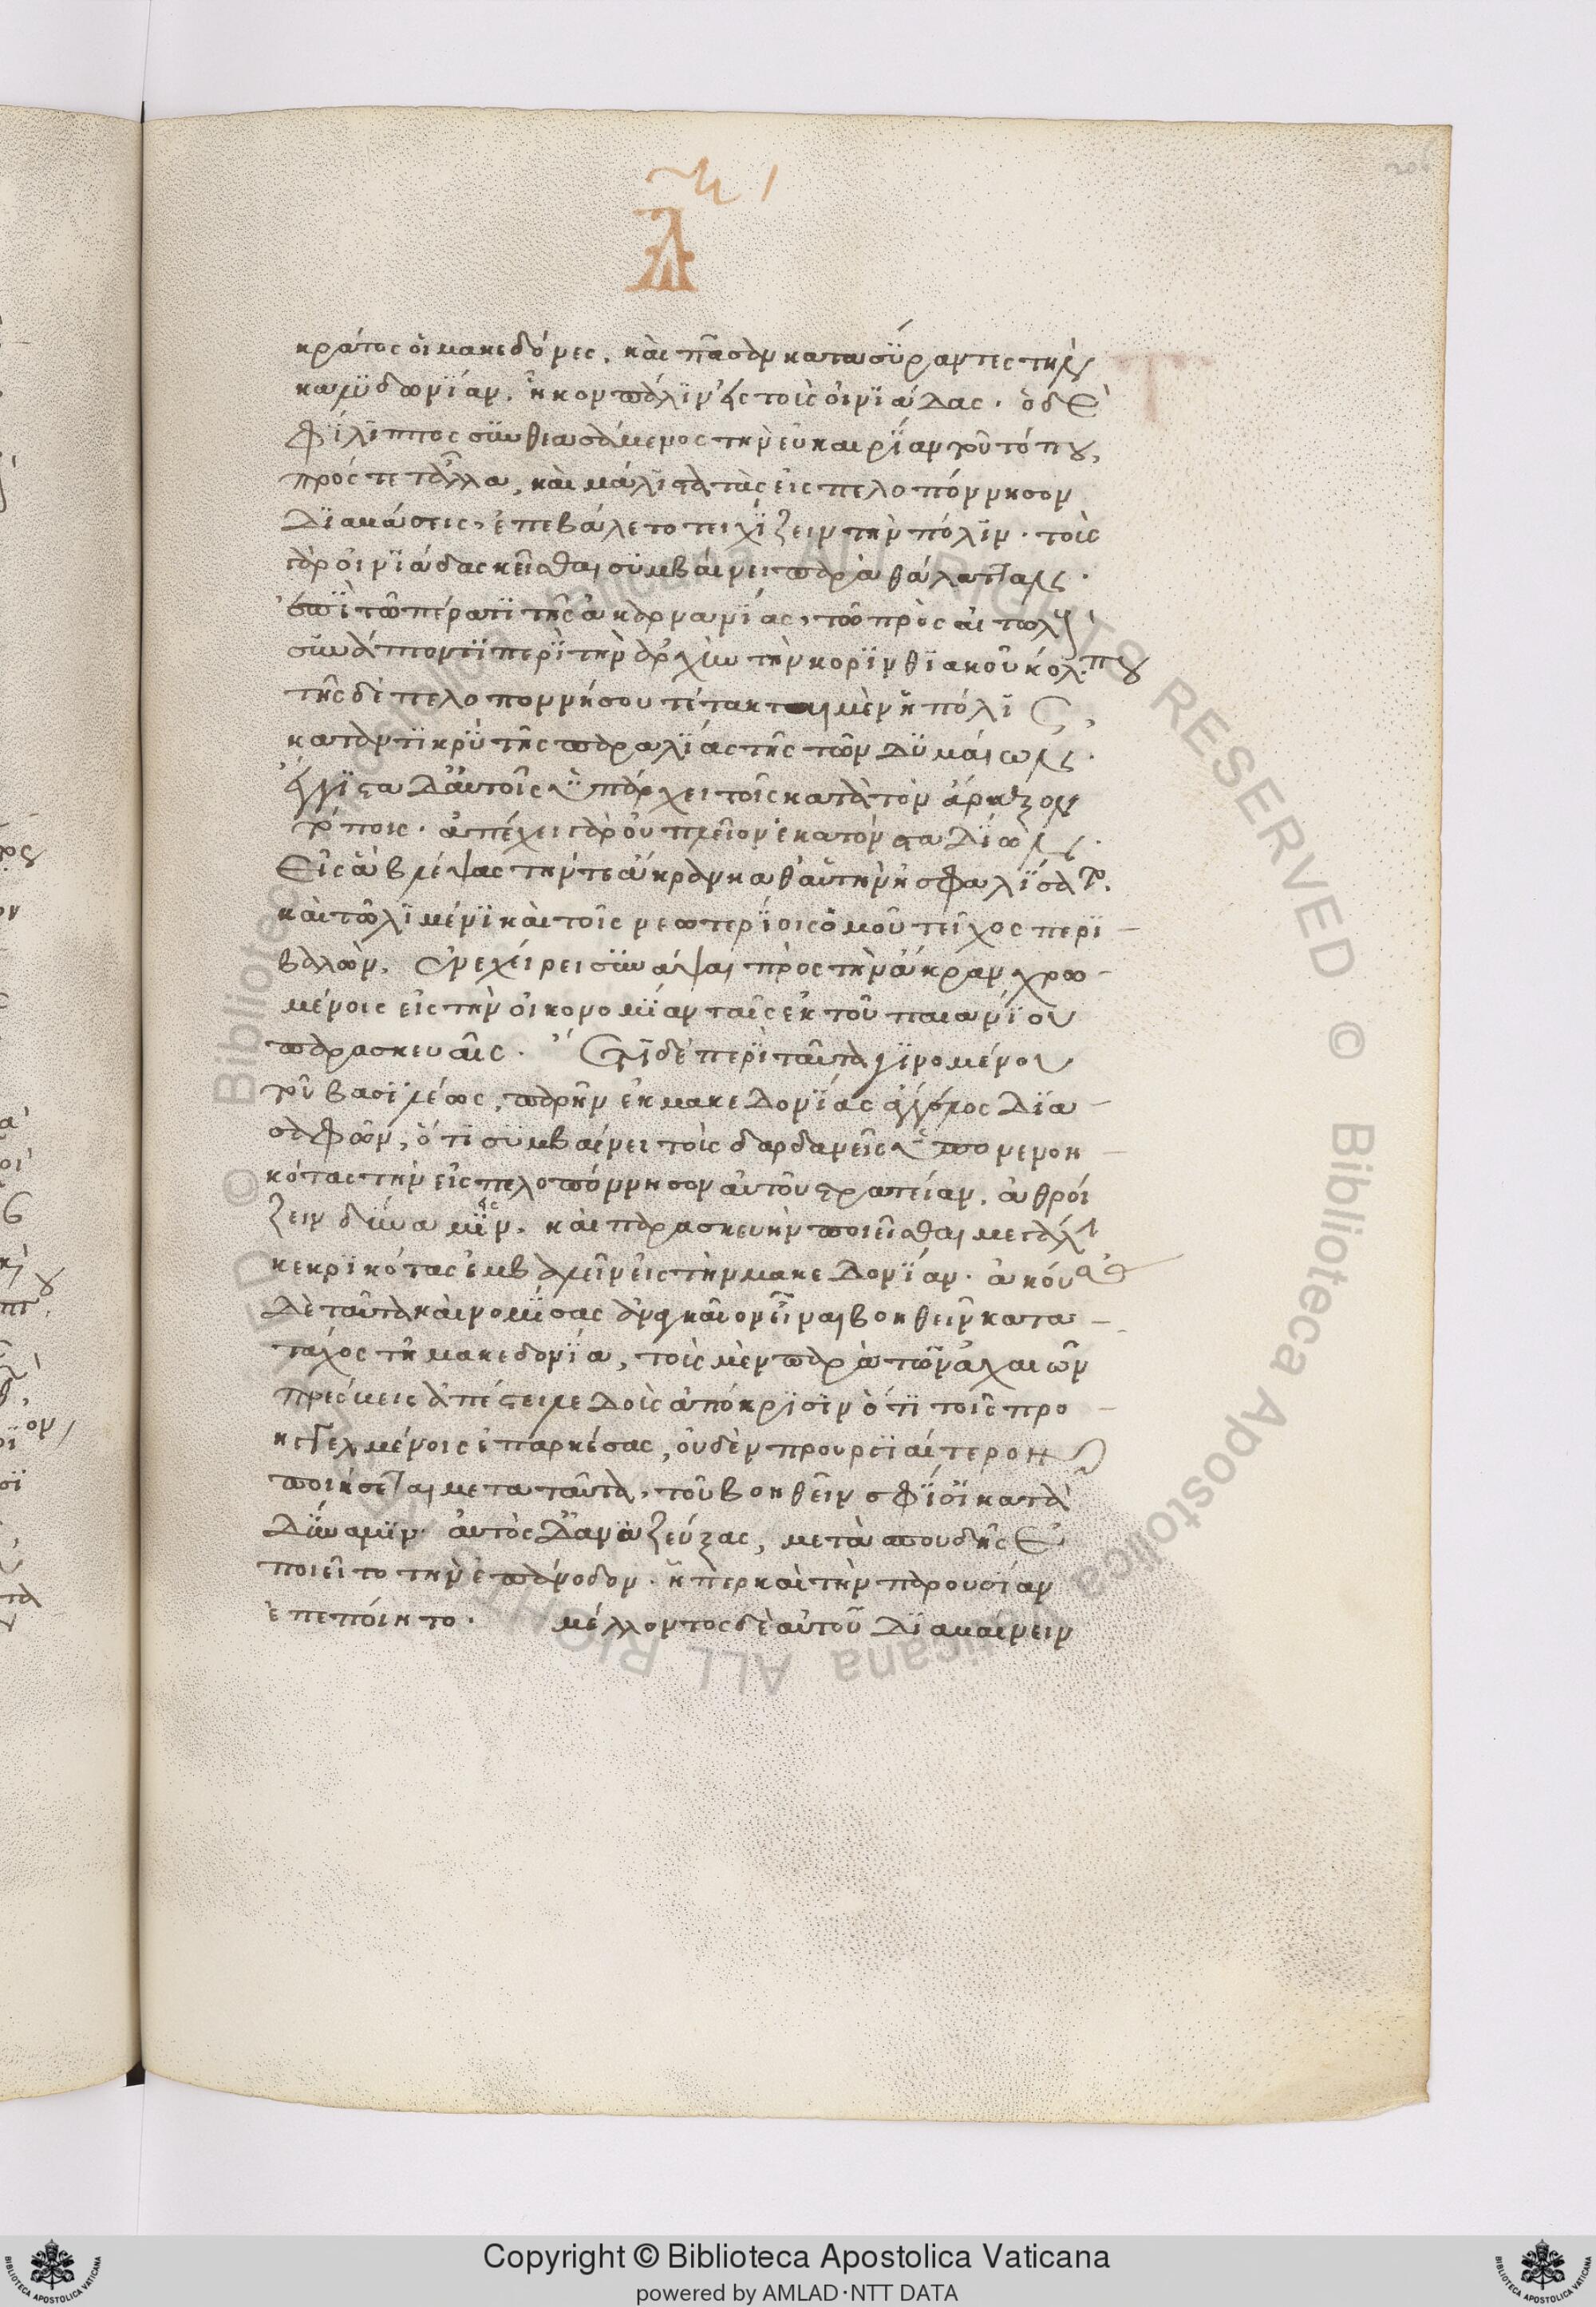 κράτος οἱ μακεδόνες. καὶ πᾶσαν κατασύραντες τὴν
καλυδωνίαν. ἧκον πάλιν εἰς τοὺς οἰνιάδας. ὁ δὲ
φίλιππος συνθεασάμενος τὴν εὐκαιρίαν τοῦ τόπου,
πρός τε τἄλλα, καὶ μάλιστα τὰς εἰς πελοπόννησον
διαβάσεις, ἐπεβάλετο τειχίζειν τὴν πόλιν. τοὺς
γὰρ οἰνιάδας κεῖσθαι συμβαίνει παρὰ θάλατταν.
ἐπὶ τῶ πέρατι τῆς ἀκαρνανίας, τῶ πρὸς αἰτωλοὺς
συνάπτοντι περὶ τὴν ἀρχὴν τὴν κορινθιακοῦ κόλπου
τῆς δὲ πελοποννήσου τέτακται μὲν ἡ πόλις,
καταντικρὺ τῆς παραλίας τῆς τῶν δυμαίων.
ἔγγιστα δ' αὐτοῖς ὑπάρχει τοῖς κατὰ τὸν ἄραξον
τόποις. ἀπέχει γὰρ οὐ πλεῖον ἑκατὸν σταδίων.
εἰς ἃ βλέψας τήν τε ἄκραν καθ' αὑτὴν ἠσφαλίσατο.
καὶ τῶ λιμένι καὶ τοῖς νεωρίοις ὁμοῦ τεῖχος περι-
βαλὼν. ἐνεχείρει συνάψαι πρὸς τὴν ἄκραν χρώ-
μενος εἰς τὴν οἰκονομίαν ταῖς ἐκ τοῦ παιανίου
παρασκευαῖς. ἔτι δὲ περὶ ταῦτα γινομένου
τοῦ βασιλέως, παρῆν ἐκ μακεδονίας ἄγγελος δια-
σαφῶν, ὅτι συμβαίνει τοὺς δαρδανεῖς ὑπονενοη-
κότας τὴν εἰς πελοπόννησον αὐτοῦ στρατείαν. ἀθροί
ζειν δυνάμεις. καὶ παρασκευὴν ποιεῖσθαι μεγάλην
κεκρικότας ἐμβαλεῖν εἰς τὴν μακεδονίαν. ἀκούσας
δὲ ταῦτα καὶ νομίσας ἀναγκαῖον εἶναι βοηθεῖν κατὰ
τάχος τῆ μακεδονία, τοὺς μὲν παρὰ τῶν ἀχαιῶν
πρέσβεις ἀπέστειλε δοὺς ἀπόκρισιν ὅτι τοῖς προ-
ηγγελμένοις ἐπαρκέσας, οὐδὲν προυργιαίτερον
ποιήσεται μετὰ ταῦτα, τοῦ βοηθεῖν σφίσι κατὰ
δύναμιν. αὐτὸς δ' ἀναζεύξας, μετὰ σπουδῆς ἐ
ποιεῖτο τὴν ἐπάνοδον. ἧπερ καὶ τὴν παρουσίαν
ἐπεποίητο. μέλλοντος δὲ αὐτοῦ διαβαίνειν
Copyright © Biblioteca Apostolica Vaticana
powered by AMLAD·NTT DATA